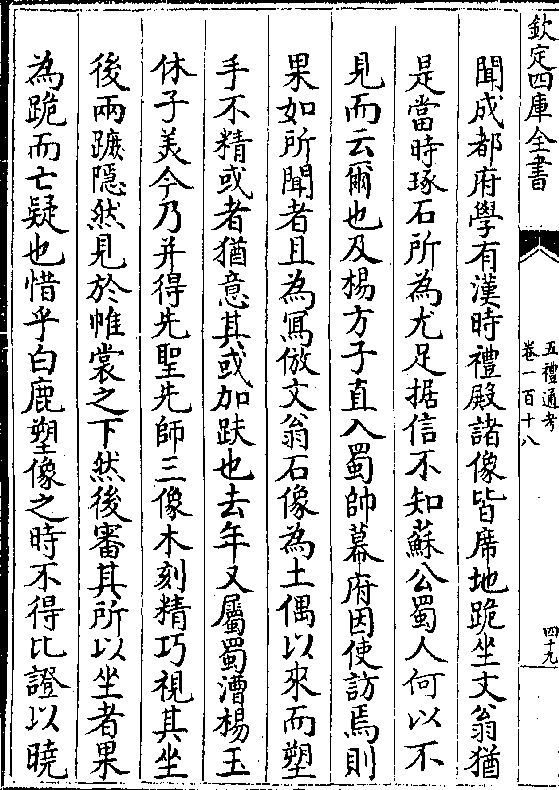 欽定四庫全書
五禮通考
卷一百十八
四十九
聞成都府學有漢時禮殿諸像皆席地跪坐文翁猶
是當時琢石所為尤足据信不知蘇公蜀人何以不
見而云爾也及楊方子直入蜀帥幕府因使訪焉則
果如所聞者且為寫倣文翁石像為土偶以來而塑
手不精或者猶意其或加趺也去年又屬蜀漕楊玉
休子美今乃并得先聖先師三像木刻精巧視其坐
後兩蹠隱然見於帷裳之下然後審其所以坐者果
為跪而亡疑也惜乎白鹿塑像之時不得比證以曉